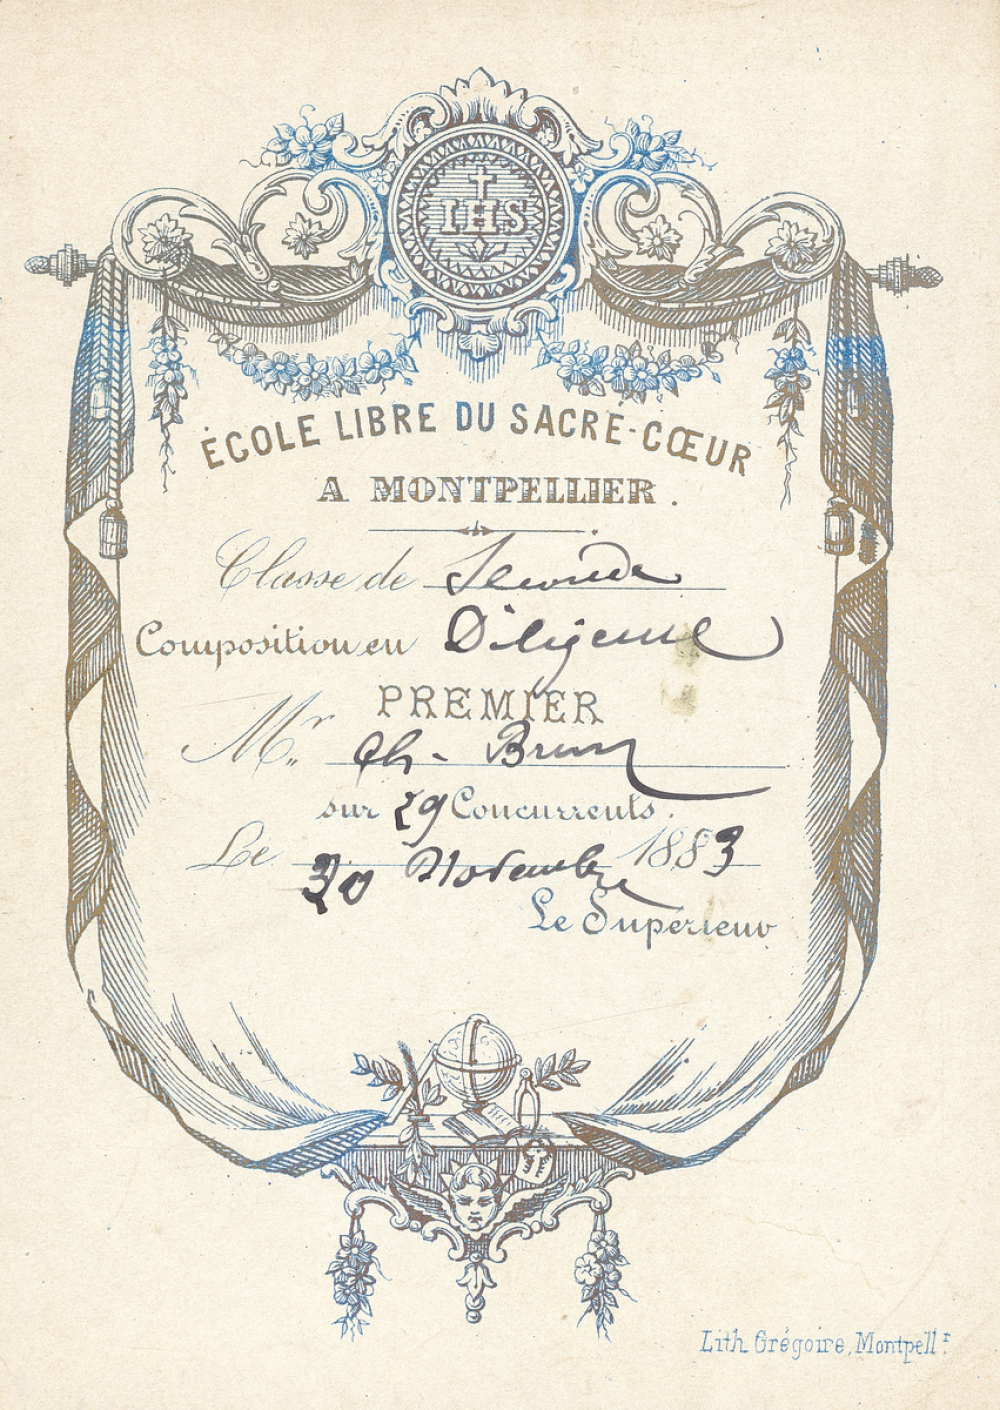 IHS
ÉCOLE LIBRE DU SACRÉ-CŒUR
A MONTPELLIER.
Classe de Seconde
Composition en Diligence
PREMIER
Mr. Ch. Brun
sur 29 Concurrents.
Le 30 Novembre 1883
Le Supérieur
Lith. Grégoire, Montpellr.